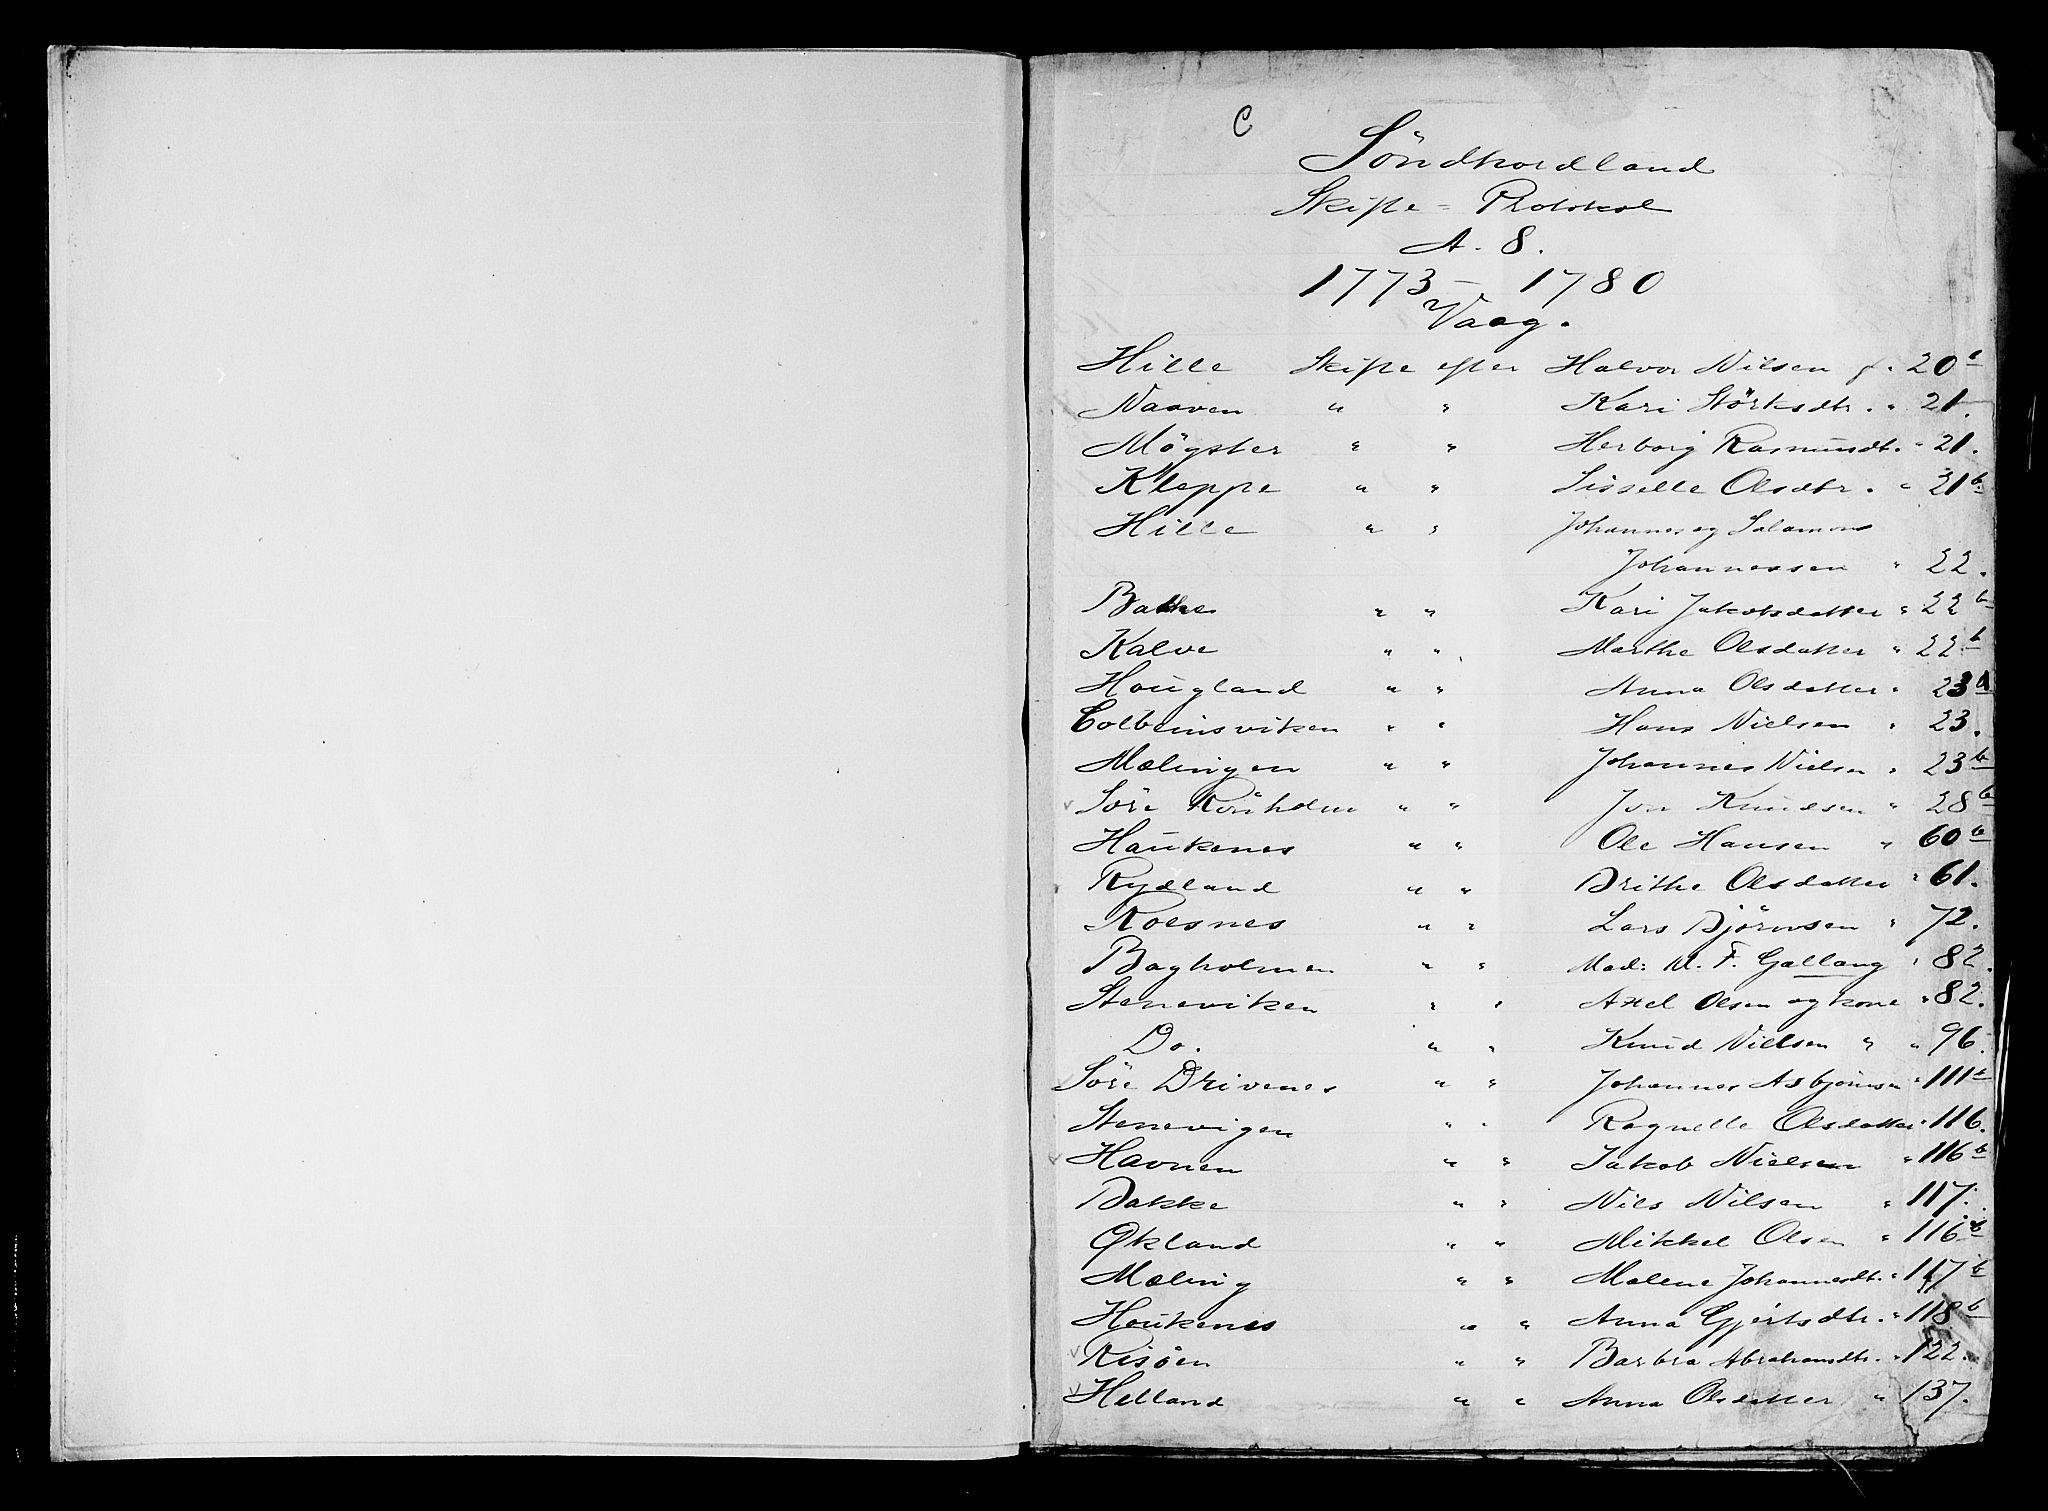 C
Söndhordland
Skifte = Protokol
A. 8.
1773 – 1780
Vaag.
Hille Skifte efter Halvor Nilsen f. 20 a
Naaven " " Kari Störksdtr. " 21.
Mögster " " Herborg Rasmusdt. " 21.
Kleppe " " Sisselle Olsdtr. " 21 b.
Hille " " Johannes og Salamons
Johannessen " 22.
Bakke " " Kari Jakobsdatter " 22 b
Kalve " " Marthe Olsdatter " 22 b
Hougland " " Anna Olsdatter " 23 b
Colbeinsviken " " Hans Nielsen " 23.
Mælingen " " Johannes Nielsen " 23 b
v Söre Röiholm " " Jon Knudsen " 28 b
Haukenes " " Ole Hansen " 60 b
Rydland " " Brithe Olsdatter " 61.
Roesnes " " Lars Björnsen " 72.
Bagholmen " " Mad: M. F. Gallang " 82.
Steneviken " " Axel Olsen og kone " 82.
Do. " " Knud Nielsen " " 96.
v Söre Drivenes " " Johannes Asbjörnsen " 111 a
Stenevigen " " Ragnelle Olsdatter " 116.
v Havnen " " Jakob Nielsen " 116 b
Bakke " " Nils Nilsen " 117.
Økland " " Mikkel Olsen " 116 b
Mæling " " Malene Johannesdt. " 117 b
Houkenes " " Anna Gjertsdtr. " 118 b
v Risöen " " Barbra Abrahamsdtr. " 122.
v Helland " " Anna Olsdatter " 137.